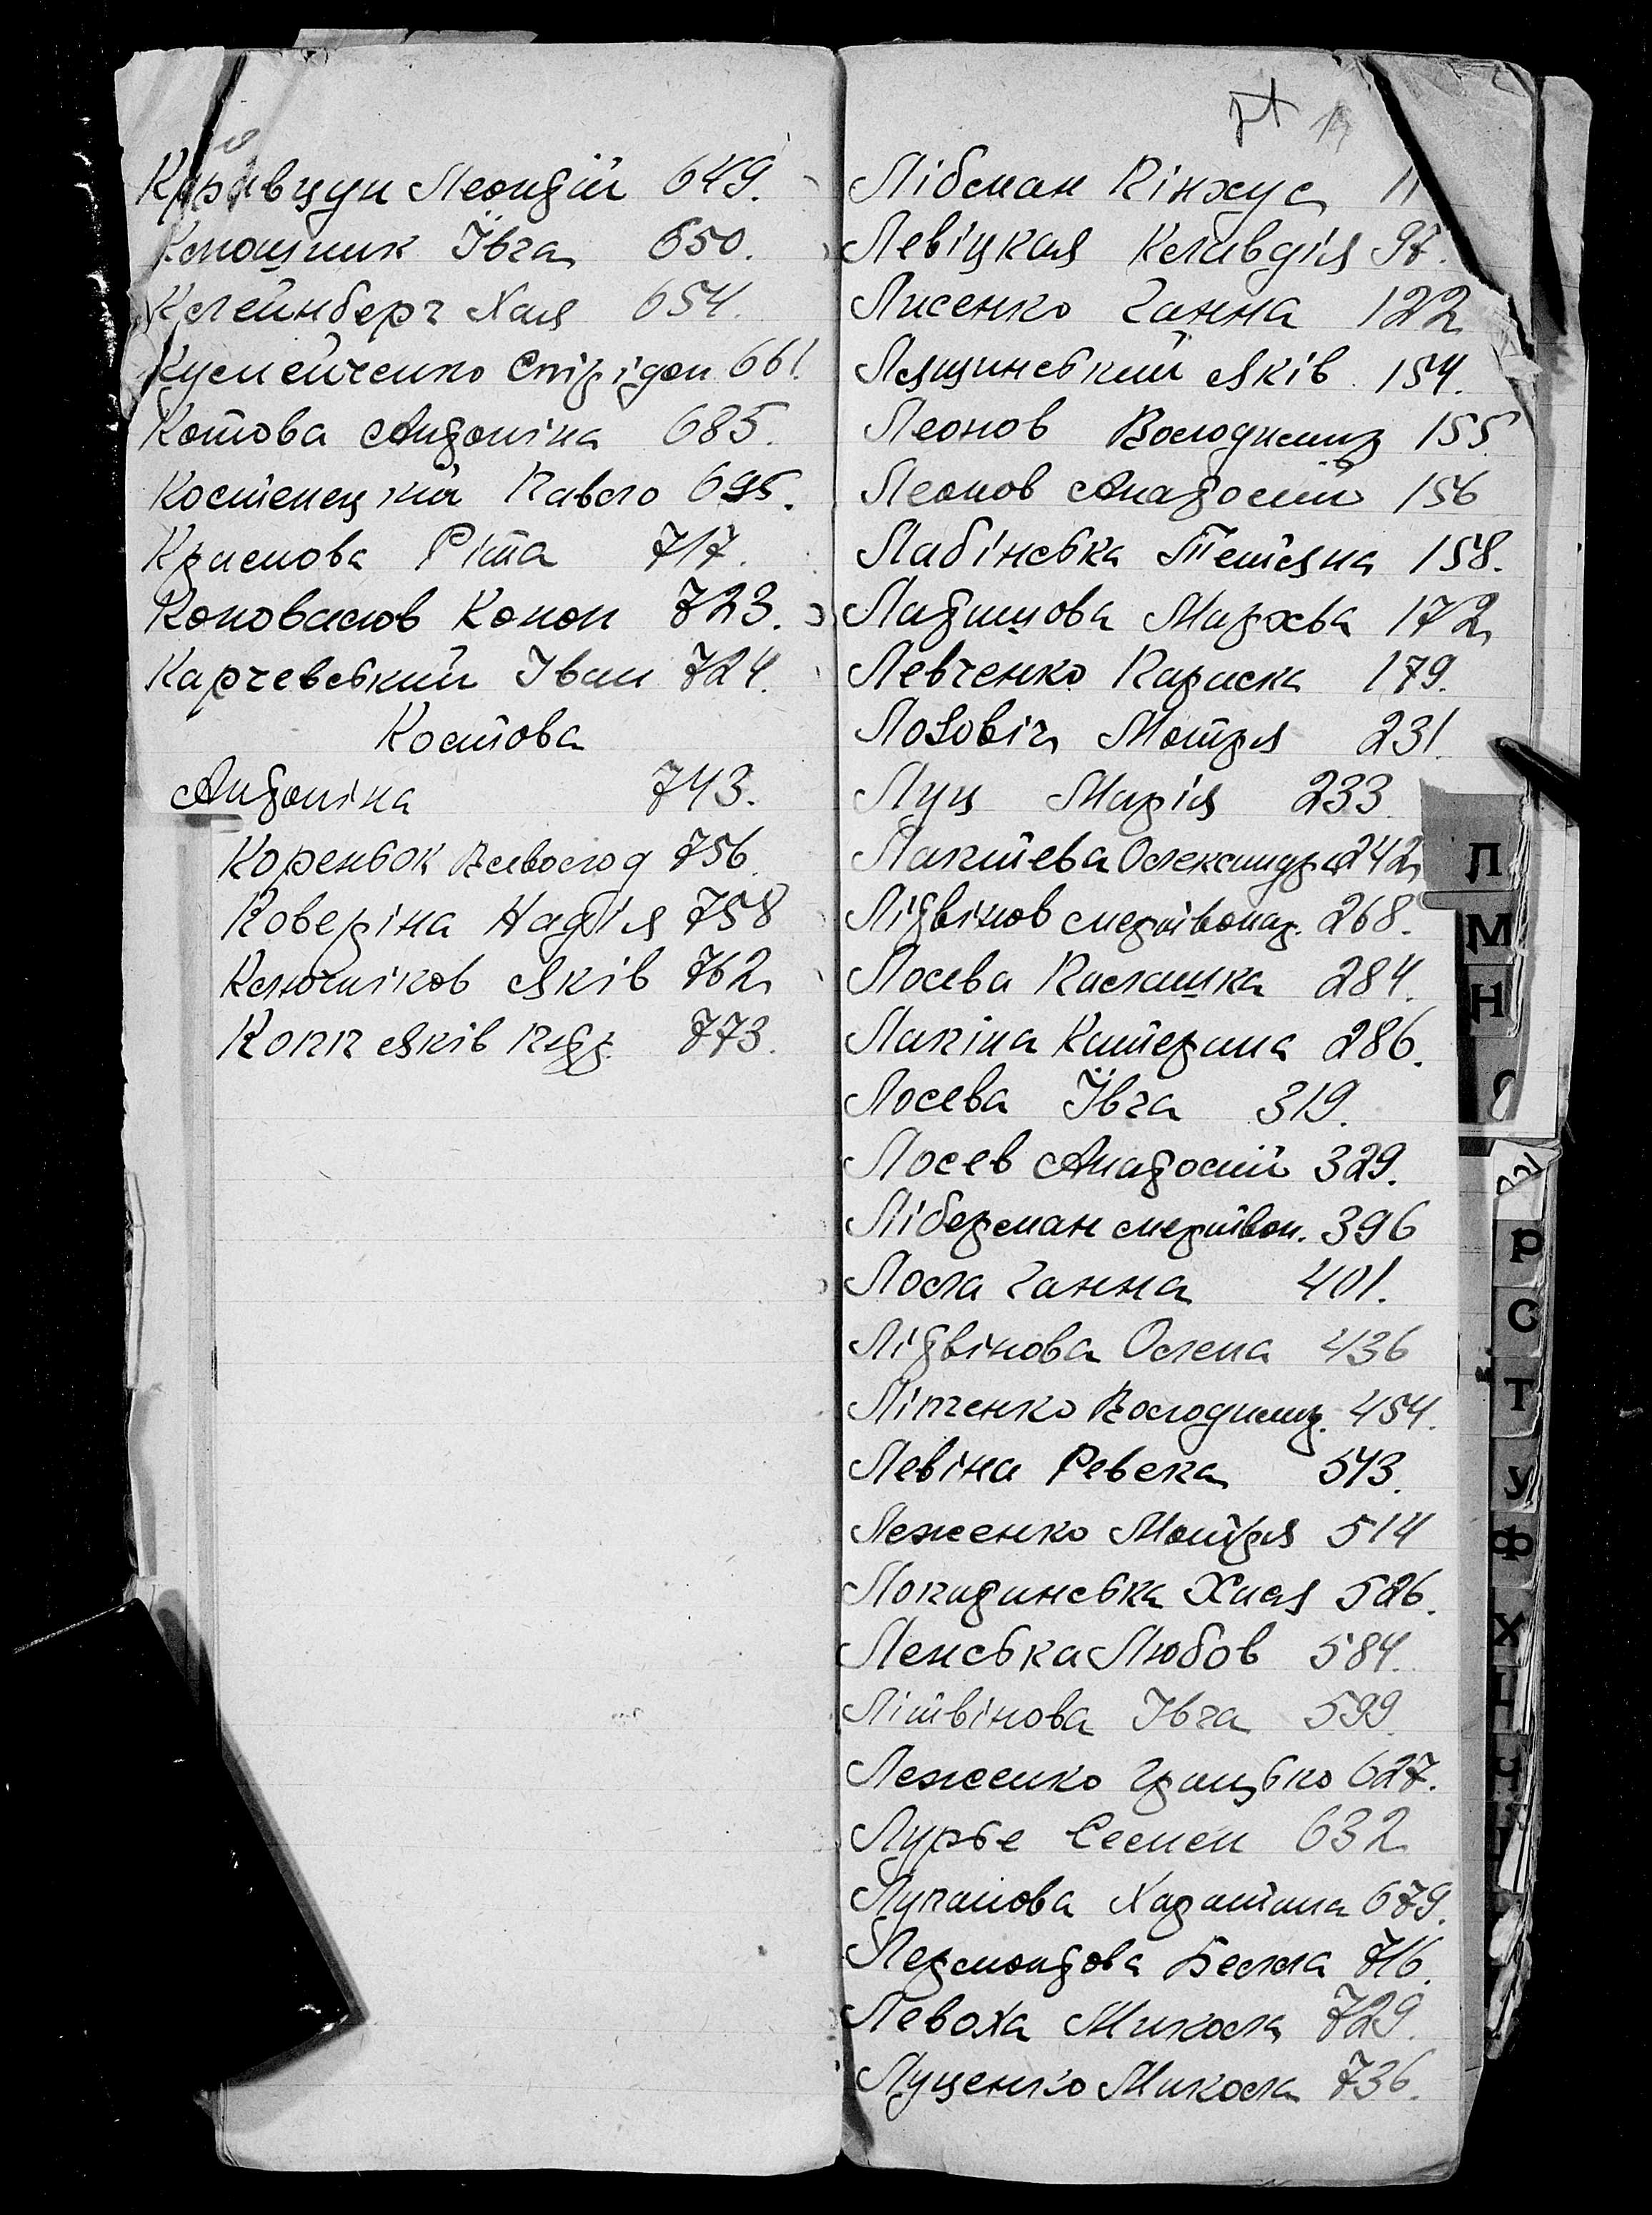 Кравцун Леонтій 649.
Клюшник Ївга 650.
Клейнберг Хая 654.
Кулейченко Спірідон 661.
Котова Антоніна 685.
Костенецкій Павло 695.
Краснова Ріта 717.
Коновалов Конон 723.
Карчевський Іван 724.
Костова
Антоніна 743.
Кореньок Всеволод 756.
Коверіна Надія 758
Ключніков Яків 762
Копп Яків 773.
Лібман Пінхус 11
Левіцкая Клавдія 97.
Лисенко Ганна 122
Лещинський Яків 154.
Леонов Володимир 155
Леонов Анатолій 156
Лабінська Тетяна 158.
Марфа 172
Левченко Параска 179.
Лозовіч Мотря 231.
Луц Марія 233
Лаптєва Олександра 242
Літвінов мертвонар. 268.
Лосєва Палашка 284.
Лапіна Катерина 286.
Лосєва Ївга 319.
Лосєв Анатолій 329.
Ліберман мертвон. 396
Лола Ганна 401.
Літвінова Олена 436
Ліпченко Володимир. 454.
Левіна Ревека 543.
Леженко Мотря 514
Хая 526.
Ленська Любов 584.
Літвінова Івга 599.
Леженко Грицько 627.
Лурьє Семен 632
Лупанова Харитина 679.
Лермонтова Белла 716.
Левоха Микола 729.
Луценко Микола 736.
Л
М
Н
Р
С
Т
У
Ф
Х